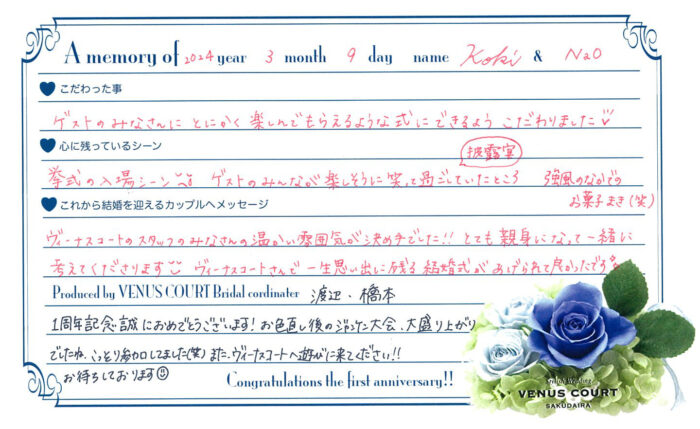 A memory of 2024 year 3 month 9 day name Koki & Nao
こだわった事
ゲストのみなさんに とにかく 楽しんでもらえるような式に できるよう こだわりました
心に残っているシーン
披露宴
挙式の入場シーン ゲストのみんなが楽しそうに 笑って過ごしていたところ 強風のなかでの
お菓子まき(笑)
これから結婚を迎えるカップルへメッセージ
ヴィーナスコートのスタッフのみなさんの温かい雰囲気が決め手でした!! とても親身になって一緒に
考えてくださります ヴィーナスコートさんで 一生思い出に残る 結婚式があげられて良かったです
Produced by VENUS COURT Bridal cordinater 渡辺・橋本
1周年記念誠におめでとうございます! お色直し後の 大会、大盛り上がり
でしたね、こっそり参加してました(笑) また、ヴィーナスコートへ遊びに来てください!!
お待ちしております
Congratulations the first anniversary!!
VENUS COURT
SAKUDAIRA